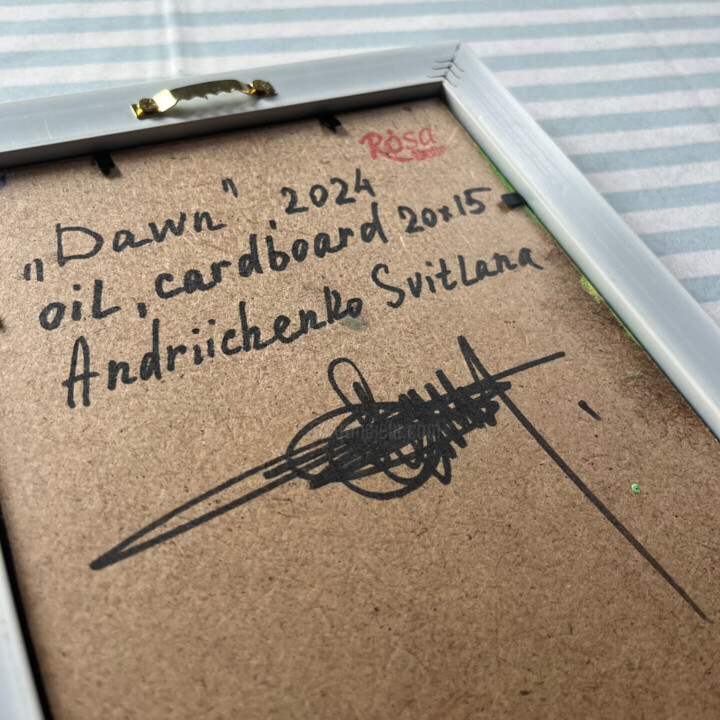 Rosa
„Dawn", 2024
oil, cardboard 20x15
Andriichenko Svitlana